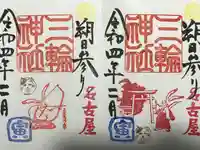 朔日参り
三輪神社
名古屋
令和四年二月
寅
朔日参り
三輪神社
名古屋
令和四年二月
寅